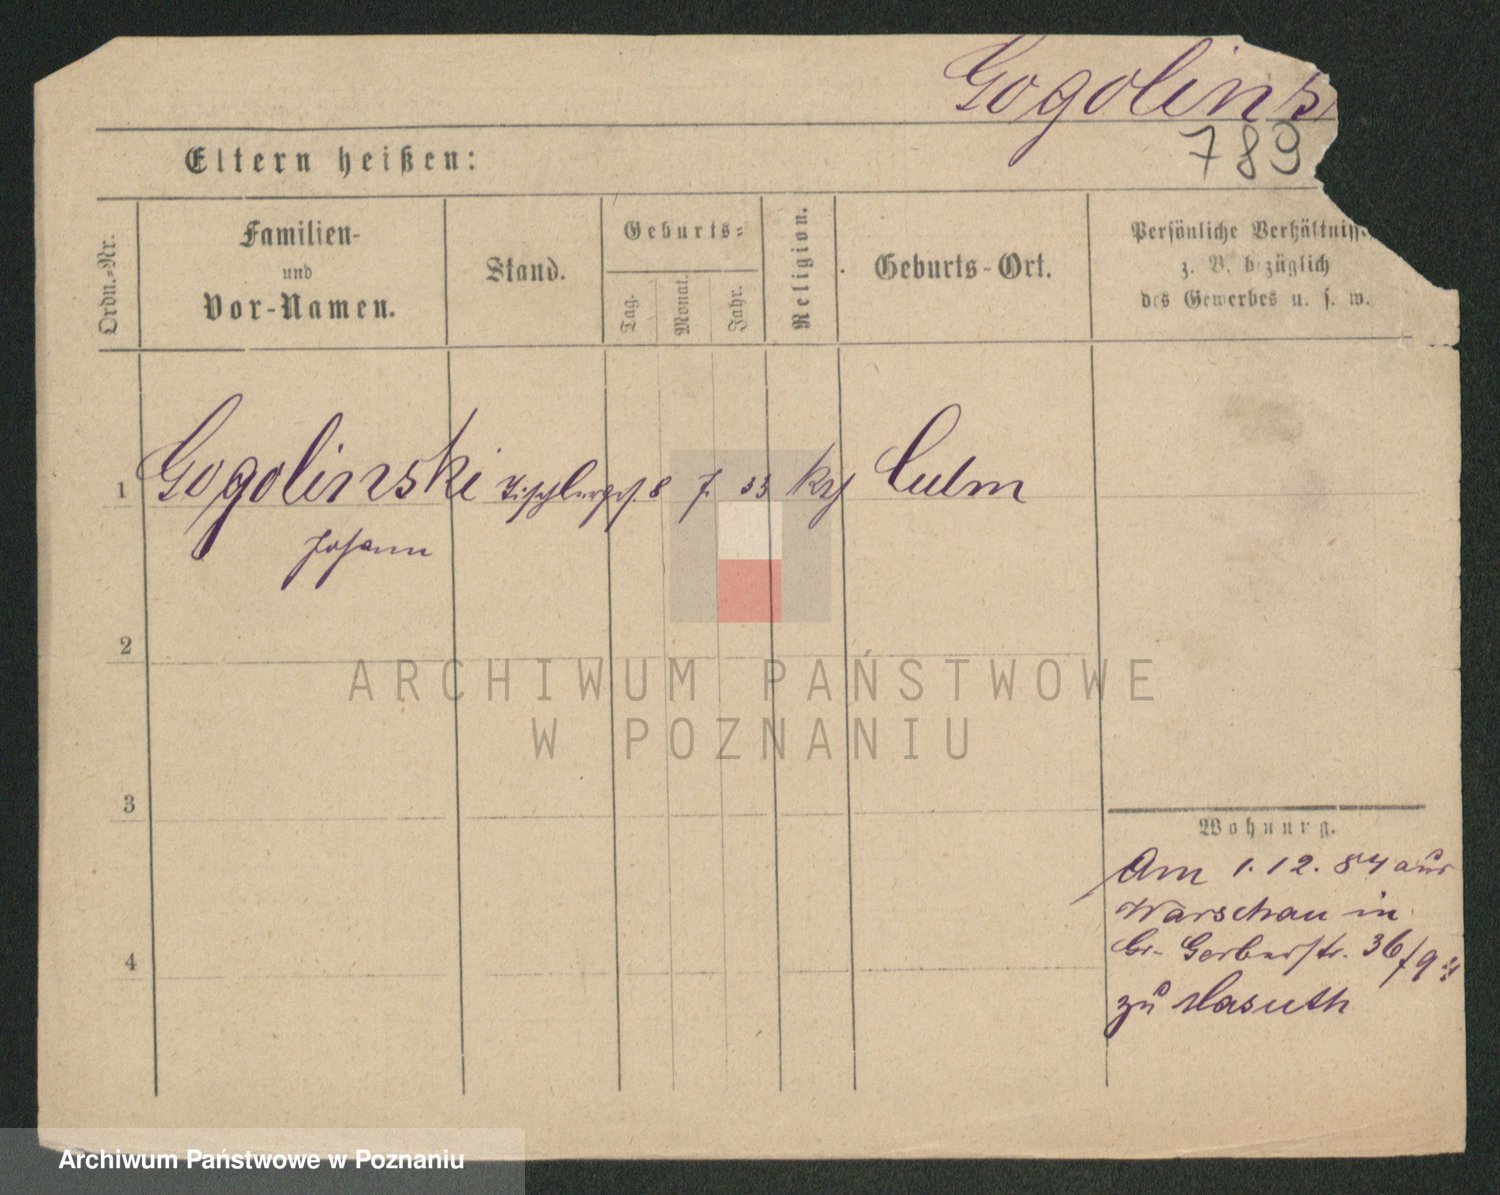 Gogolins
789
Eltern heißen:
Ordn.-Nr.
Familien-
und
Vor-Namen.
Stand.
Geburts-
Tag.
Monat.
Jahr.
Religion.
Geburts-Ort.
Persönliche Verhältniss
z. B. bezüglich
des Gewerbes u. s. w.
1 Gogolinski Tischlerges. 8 7. 33 Culm
Johann
2
3
4
Wohnung.
Am 1.12.84 aus
Warschau in
Gr. Gerberstr. 36
zu
ARCHIWUM PAŃSTWOWE
W POZNANIU
Archiwum Państwowe w Poznaniu